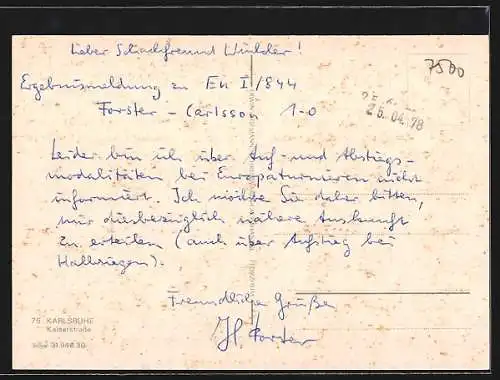 Lieber Schachfreund Winkler!
7500
Ergebnismeldung zu EU I/844
Forster – Carlsson 1-0
25.04.78
Leider bin ich über Auf- und Abstiegs-
modalitäten bei Europaturnieren nicht
informiert. Ich möchte Sie daher bitten,
mir diesbezüglich nähere Auskunft
zu erteilen (auch über Aufstieg bei
Halbsiegen).
Freundliche Grüße
H. Forster
75 KARLSRUHE
Kaiserstraße